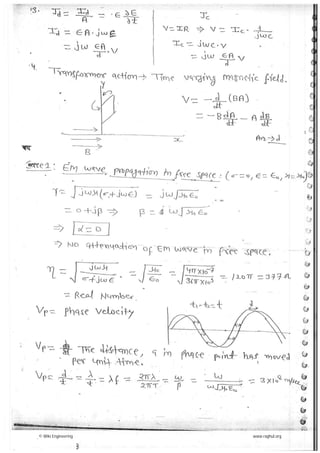 13. Jd = Id/A = ε ∂E/∂t    Ic
Id = εA·jωE    V = IR ⇒ V = Ic · 1/jωc
= jω εA/d · V    Ic = jωc·V
= jω εA/d V
4. Transformer action → Time varying magnetic field.
y
V = -d/dt (BA)
= -B dA/dt - A dB/dt
x    An → d
B
Case 1: Em wave propagation in free space: (σ=0, ε=ε₀, μ=μ₀)
γ = √jωμ(σ+jωε) = jω√μ₀ε₀
= 0+jβ ⇒ β = ω√μ₀ε₀
⇒ α = 0
⇒ No attenuation of Em wave in free space.
η = √jωμ/σ+jωε = √μ₀/ε₀ = √4π×10⁻⁷/36π×10⁹ = 120π = 377Ω
= Real Number.
t₁-t₀=t
Vp = Phase Velocity
Vp = The distance, a in phase point has moved
per unit time.
Vp = d/t = λ/t = λf = 2πλ/2πT = ω/β = ω/ω√μ₀ε₀ = 3×10⁸ m/sec
© Wiki Engineering    www.raghul.org
3